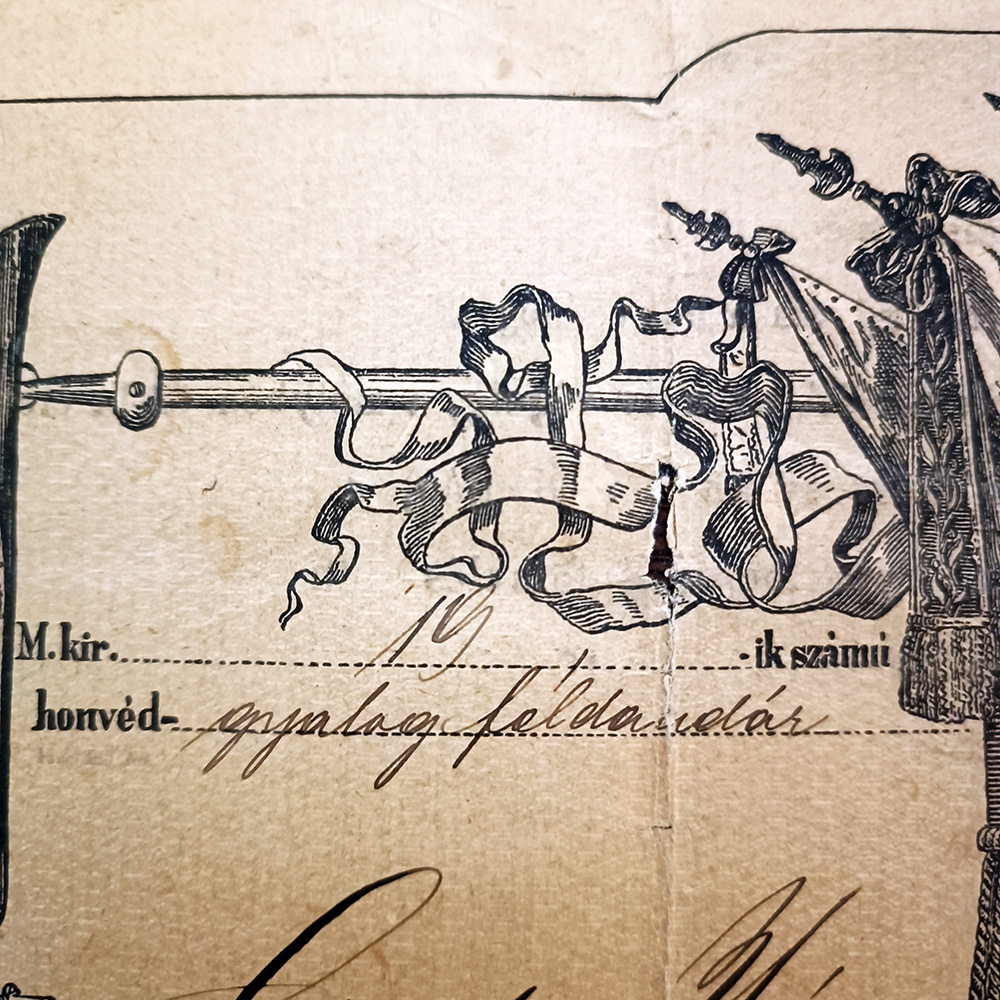 M. kir. 19 -ik számú
honvéd- gyalog féldandár